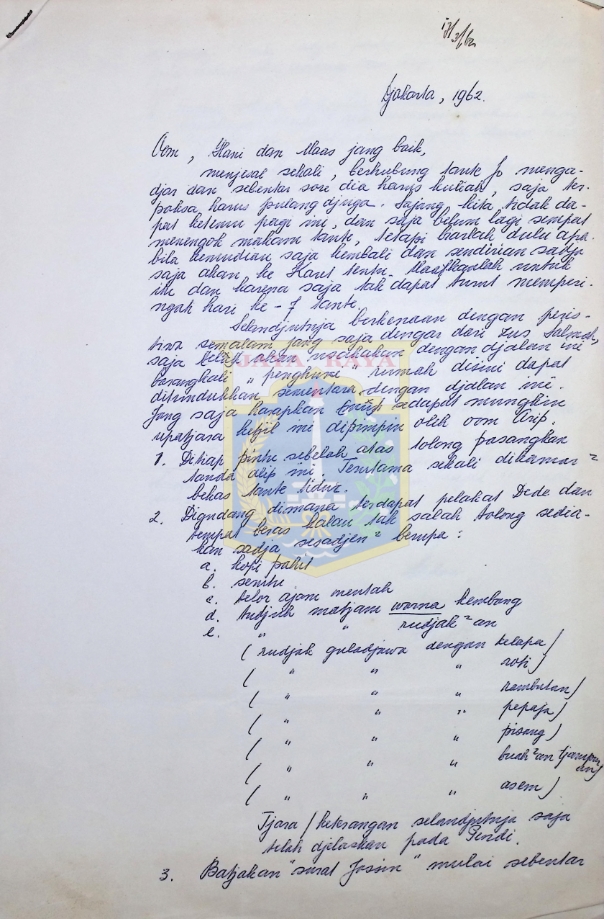 17/3/62
Djakarta, 1962.
Oom, Hani dan Maas jang baik,
menjesal sekali, berhubung tante Jo menga-
djar dan sebentar sore dia harus kuliah, saja ter-
paksa harus pulang djuga. Sajang, kita tidak da-
pat ketemu pagi ini, dan saja belum lagi sempat
menengok makam tante, tetapi biarlah dulu apa-
bila kemudian saja kembali dan sendirian sadja
saja akan ke Karet tentu. Maafkanlah untuk
ini dan karena saja tak dapat turut memperi-
ngati hari ke-7 tante.
Selandjutnja berkenaan dengan peris-
tiwa semalam jang saja dengar dari zus
saja akan dengan djalan ini
barangkali "penghuni" rumah disini dapat
ditundukkan sementara dengan djalan ini.
Jang saja harapkan sedapat mungkin
upatjara ketjil ini dipimpin oleh oom Arip.
1. Ditiap pintu sebelah atas tolong pasangkan
tanda alip ini. Terutama sekali dikamar2
bekas tante tidur.
2. Digudang dimana terdapat pelakat Dede dan
tempat beras kalau tak salah tolong sedia-
kan sadja sesadjen2 berupa:
a. kopi pahit
b. serutu
c. telor ajam mentah
d. tudjuh matjam warna kembang
e. " " rudjak2an
(rudjak guladjawa dengan kelapa)
( " " " roti)
( " " " rambutan)
( " " " pepaja)
( " " " pisang)
( " " " buah2an tjampur
an)
( " " " asem)
Tjara/keterangan selandjutnja saja
telah djelaskan pada
3. Batjakan "surat Jasin" mulai sebentar
JAYA RAYA